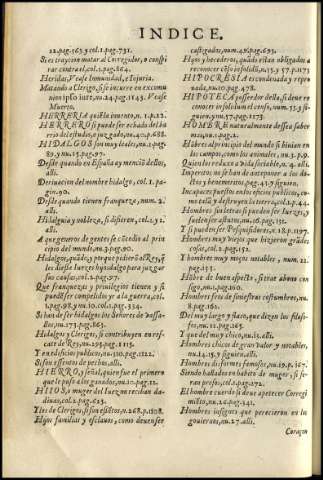 INDICE.
22.pag.163.y col.1.pag.731.
Si es traycion matar al Corregidor, o conspi
rar contra el, col.2.pag.864.
Heridas, Vease Inmunidad, e Injuria.
Matando a Clerigo, si se incurre en excomu
nion ipso iure, nu.24.pag.1143. Vease
Muerto.
HERRERIA quiẽ la inuento, n.1.p.12.
HERRERO si puede ser echado del ba
rrio del estudio, o negado, nu.40.p.688.
HIDALGOS son muy leales, nu.1.pag.
89. y nu.15.pag.97.
Desde quando en España ay mencio dellos,
alli.
Deriuacion del nombre hidalgo, col.1. pa
gin.90.
Desde quando tienen franqueza, num.2.
alli.
Hidalguia y nobleza, si difieren, col.2. y 2.
alli.
A que generos de gentes se estedio al prin
cipio del mundo, nu.3.pag.90.
Hidalgos, quãdo, y porque pidierõ al Rey, q̃
les diesse juezes hijosdalgo para juzgar
sus causas, col.2.pag.97.
Que franquezas y priuilegios tienen y si
puedẽ ser compelidos yr a la guerra, col.
1.pag.98. y nu.10. col.2.pag.334.
Si han de ser hidalgos los Señores de vassa-
llos, nu.173.pag.863.
Hidalgos y Clerigos, si contribuyen en res-
cate de Rey, nu.295.pag.1113.
Y en edificios publicos, nu.300.pag.1122.
Si son essentos de pechos, alli.
HIERRO, y señal, quien fue el primero
que le puso a los ganados, nu.10.pag.12.
HIIOS, y muger del Iuez no reciban da-
diuas, col.2.pag.623.
Y los de Clerigos, si son essẽtos, n.268.p.1108.
Hijos familias y esclauos, como deuen ser
castigados, num.48.pag.693.
Hijos y herederos, quãdo estan obligados a
reconocer cẽso insolidũ, n.13. y 57.p.173
HIPOCRESIA es condenada y repro-
uada, nu.10.pag.478.
HIPOTECA posseedor della, si deue re
conocer insolidum el censo, num.53. y si-
guien. y num.57.pag.173.
HOMBRE naturalmente dessea saber
nu.1.pag.1.
Hõbres al principio del mundo si biuian en
los campos, como los animales, nu.1.p.9.
Quien los reduxo a vida sociable, n.4. alli.
Imperitos no se han de anteponer a los do-
ctos y benemeritos, pag.43. y siguien.
Incapaces puestos en los oficios publicos, co-
mo talã y destruyen los terceros, col.1.p.44.
Hombres sin letras si pueden ser Iuezes, y
de sembar assuntos, nu.16.pag.131.
Y si pueden ser Pesquisidores, n.18.p.1197.
Hombres muy viejos que hizieron grãdes
cosas, col.1.pag.152.
Y hombres muy moços notables, num.21.
pag.153.
Hõbre de buen aspecto, si trae abono con
sigo, nu.10.pag.160.
Hombres feos de siniestras costumbres, nu.
8.pag.160.
Del muy largo y flaco, que dizen los filoso-
fos, nu.12.pag.165.
Y que del muy chico, nu.13. alli.
Hombres chicos de gran valor y notables,
nu.14.15. y siguien. alli.
Hombres disformes famosos, nu.19.p.367.
Siendo hallados en habito de muger, si se-
ran presos, col.2.pag.172.
El hombre cuerdo si deue apetecer Corregi
miento, nu.26.pag.341.
Hombres insignes que perecieron en los
gouiernos, nu.27. alli.
Coraçon